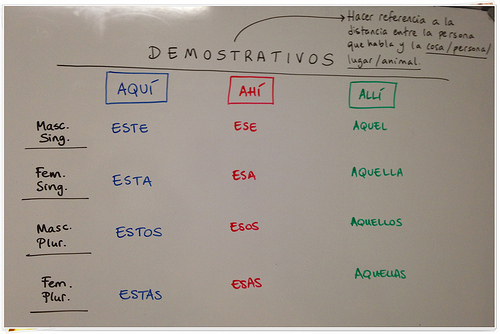 Hacer referencia a la
distancia entre la persona
que habla y la cosa/persona/
lugar/animal.
DEMOSTRATIVOS
AQUÍ AHÍ ALLÍ
Masc.
Sing.
ESTE ESE AQUEL
Fem.
Sing.
ESTA ESA AQUELLA
Masc.
Plur.
ESTOS ESOS AQUELLOS
Fem.
Plur.
ESTAS ESAS AQUELLAS